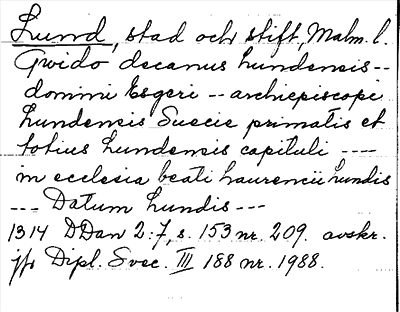 Lund, stad och stift, Malm. l.
Gwido decanus Lundensis --
domini Esgeri -- archiepiscopi
Lundensis Suecie primatis et
totius Lundensis capituli ----
in ecclesia beati Laurencii Lundis
--- Datum Lundis ---
1314 DDan 2:7, s. 153 nr. 209. avskr.
jfr Dipl. Svec. III 188 nr. 1988.